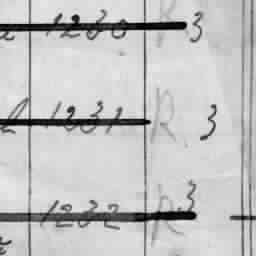 1230 R 3
1231 R. 3
1232 R 3